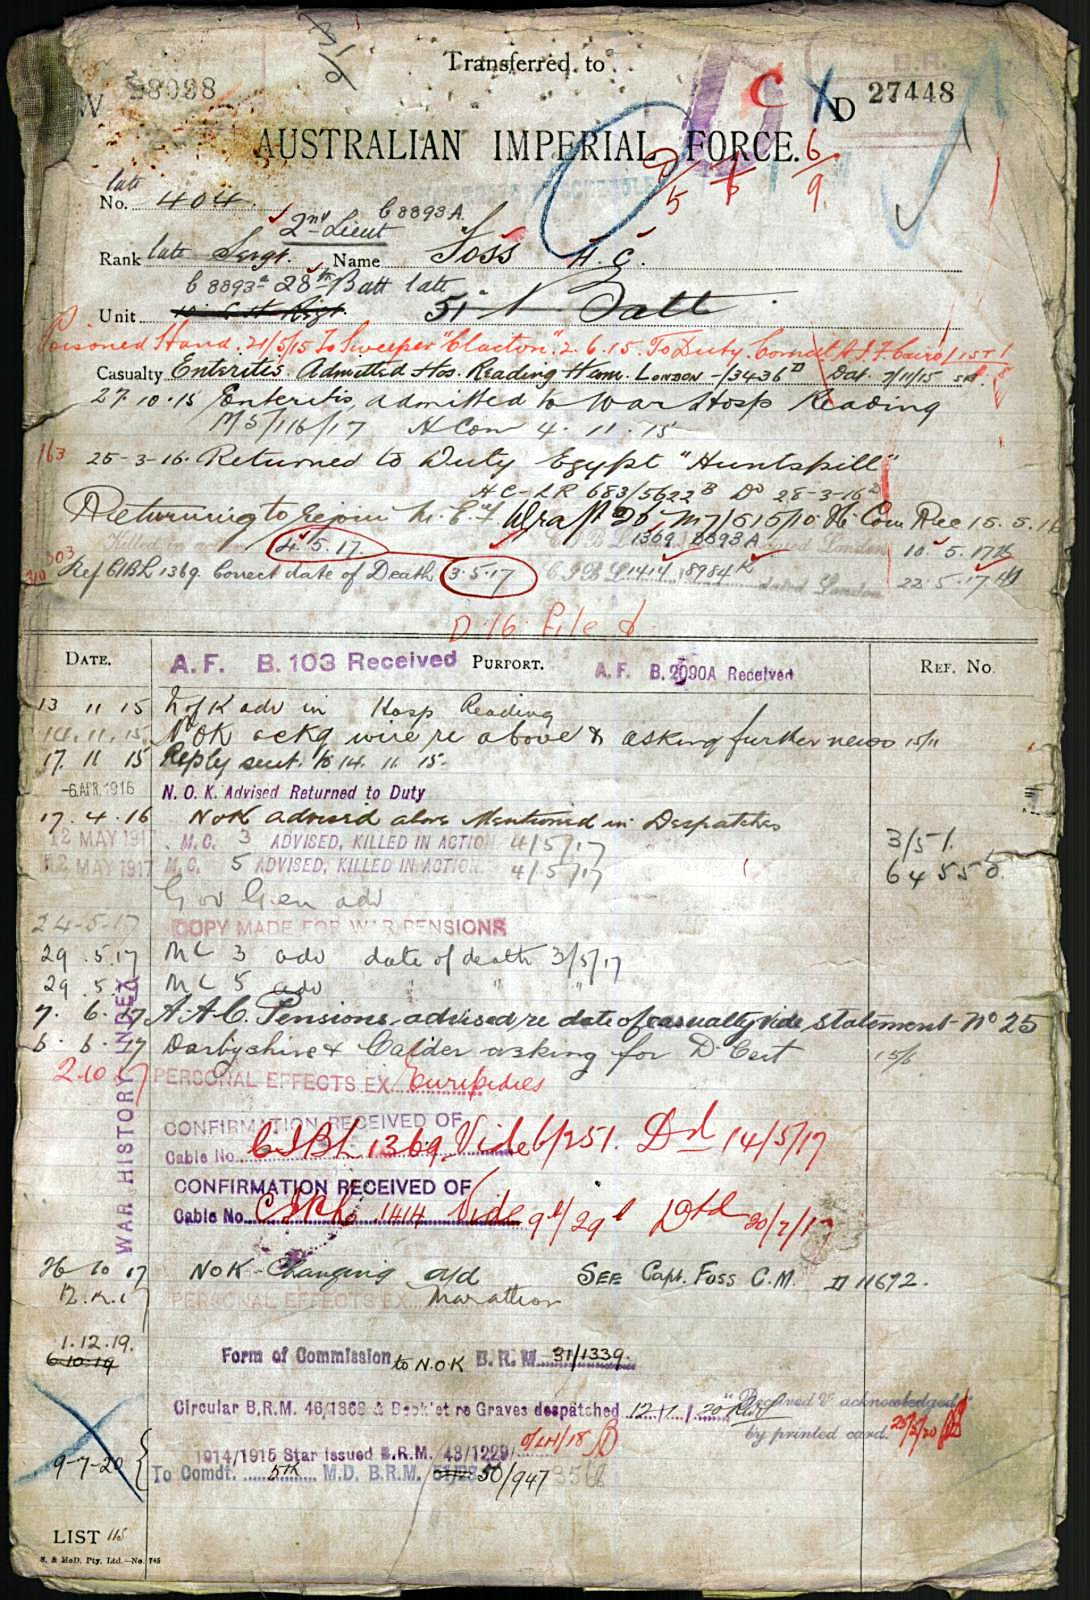 Transferred to
W 58098
C X D 27448
AUSTRALIAN IMPERIAL FORCE.
D/5 6/9
late
No. 404
2nd Lieut C 8893A
Rank late Sergt. Name Foss H. C.
C 8893A 28th Batt late
Unit 51st Batt
Poisoned Hand. 21/5/15 To Sweeper "Clacton". 2.6.15. To Duty.
Casualty Enteritis. Admitted Hos. Reading H Com. London - 13436D Dat. 7/11/15
27.10.15 Enteritis, admitted to War Hosp Reading
M5/116/17 H Com 4.11.15
163 25-3-16. Returned to Duty Egypt "Huntspill"
HC-LR 683/5622B Dd 28-3-16
Returning to rejoin M.E.F M7/515/10 H. Com Rec 15.5.16
303 Killed in action 4.5.17. C I B L 1369 8893A dated London 10.5.17
310 Ref CIBL 1369. Correct date of Death 3.5.17 C I B L 1414 8984K dated London 22.5.17
D.16. Filed
DATE. A.F. B.103 Received PURPORT. A.F. B.2090A Received REF. NO.
13 11 15 N of K adv in Hosp Reading
14.11.15 NOK ackg wire re above & asking further news 15/11
17. 11 15 Reply sent. to 14. 11 15.
-6 APR. 1916 N.O.K. Advised Returned to Duty
17.4.16 NoK advised above Mentioned in Despatches
12 MAY 1917 M.C. 3 ADVISED, KILLED IN ACTION 4/5/17 3/51.
12 MAY 1917 M.C. 5 ADVISED, KILLED IN ACTION 4/5/17 64555.
Gov Gen adv
24-5-17 COPY MADE FOR WAR PENSIONS
29.5.17 MC 3 adv date of death 3/5/17
29.5. MC 5 adv " " "
7. 6. 17 A.A.C. Pensions advised re date of casualty vide Statement No 25
6. 6. 17 Darbyshire & Calder asking for D. Cert 15/6
2 10 17 PERSONAL EFFECTS EX. Euripides
CONFIRMATION RECEIVED OF
Cable No. CIBL 1369 Vide 6/251. Dd 14/5/17
CONFIRMATION RECEIVED OF
Cable No. CIBL 1414 Vide Dtd 20/7/17
WAR HISTORY INDEX
26 10 17 NOK Changing a/d SEE Capt. Foss C.M. D 11672.
12. PERSONAL EFFECTS EX. Marathon
1.12.19.
6.10.19
Form of Commission to N.O.K B.R.M. 31/1339.
Circular B.R.M. 46/1868 & Booklet re Graves despatched 12/1/20 Received & acknowledged
by printed card. 25/2/20
1914/1915 Star issued B.R.M. 43/1229/
9-7-20 To Comdt. 5th M.D. B.R.M. 50/947
LIST 115
S. & McD. Pty. Ltd.—No. 745